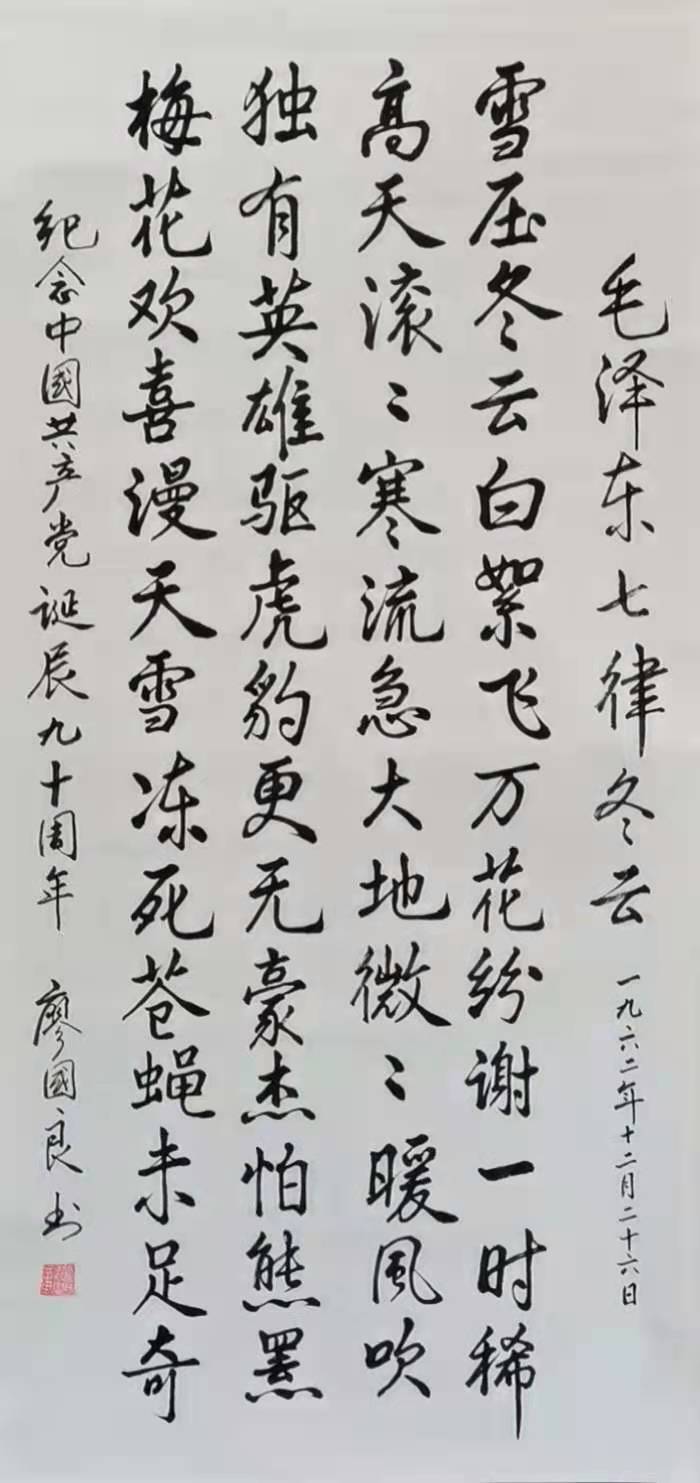 毛泽东七律冬云 一九六二年十二月二十六日
雪压冬云白絮飞万花纷谢一时稀
高天滚〻寒流急大地微〻暖风吹
独有英雄驱虎豹更无豪杰怕熊罴
梅花欢喜漫天雪冻死苍蝇未足奇
纪念中國共产党诞辰九十周年 廖國良书